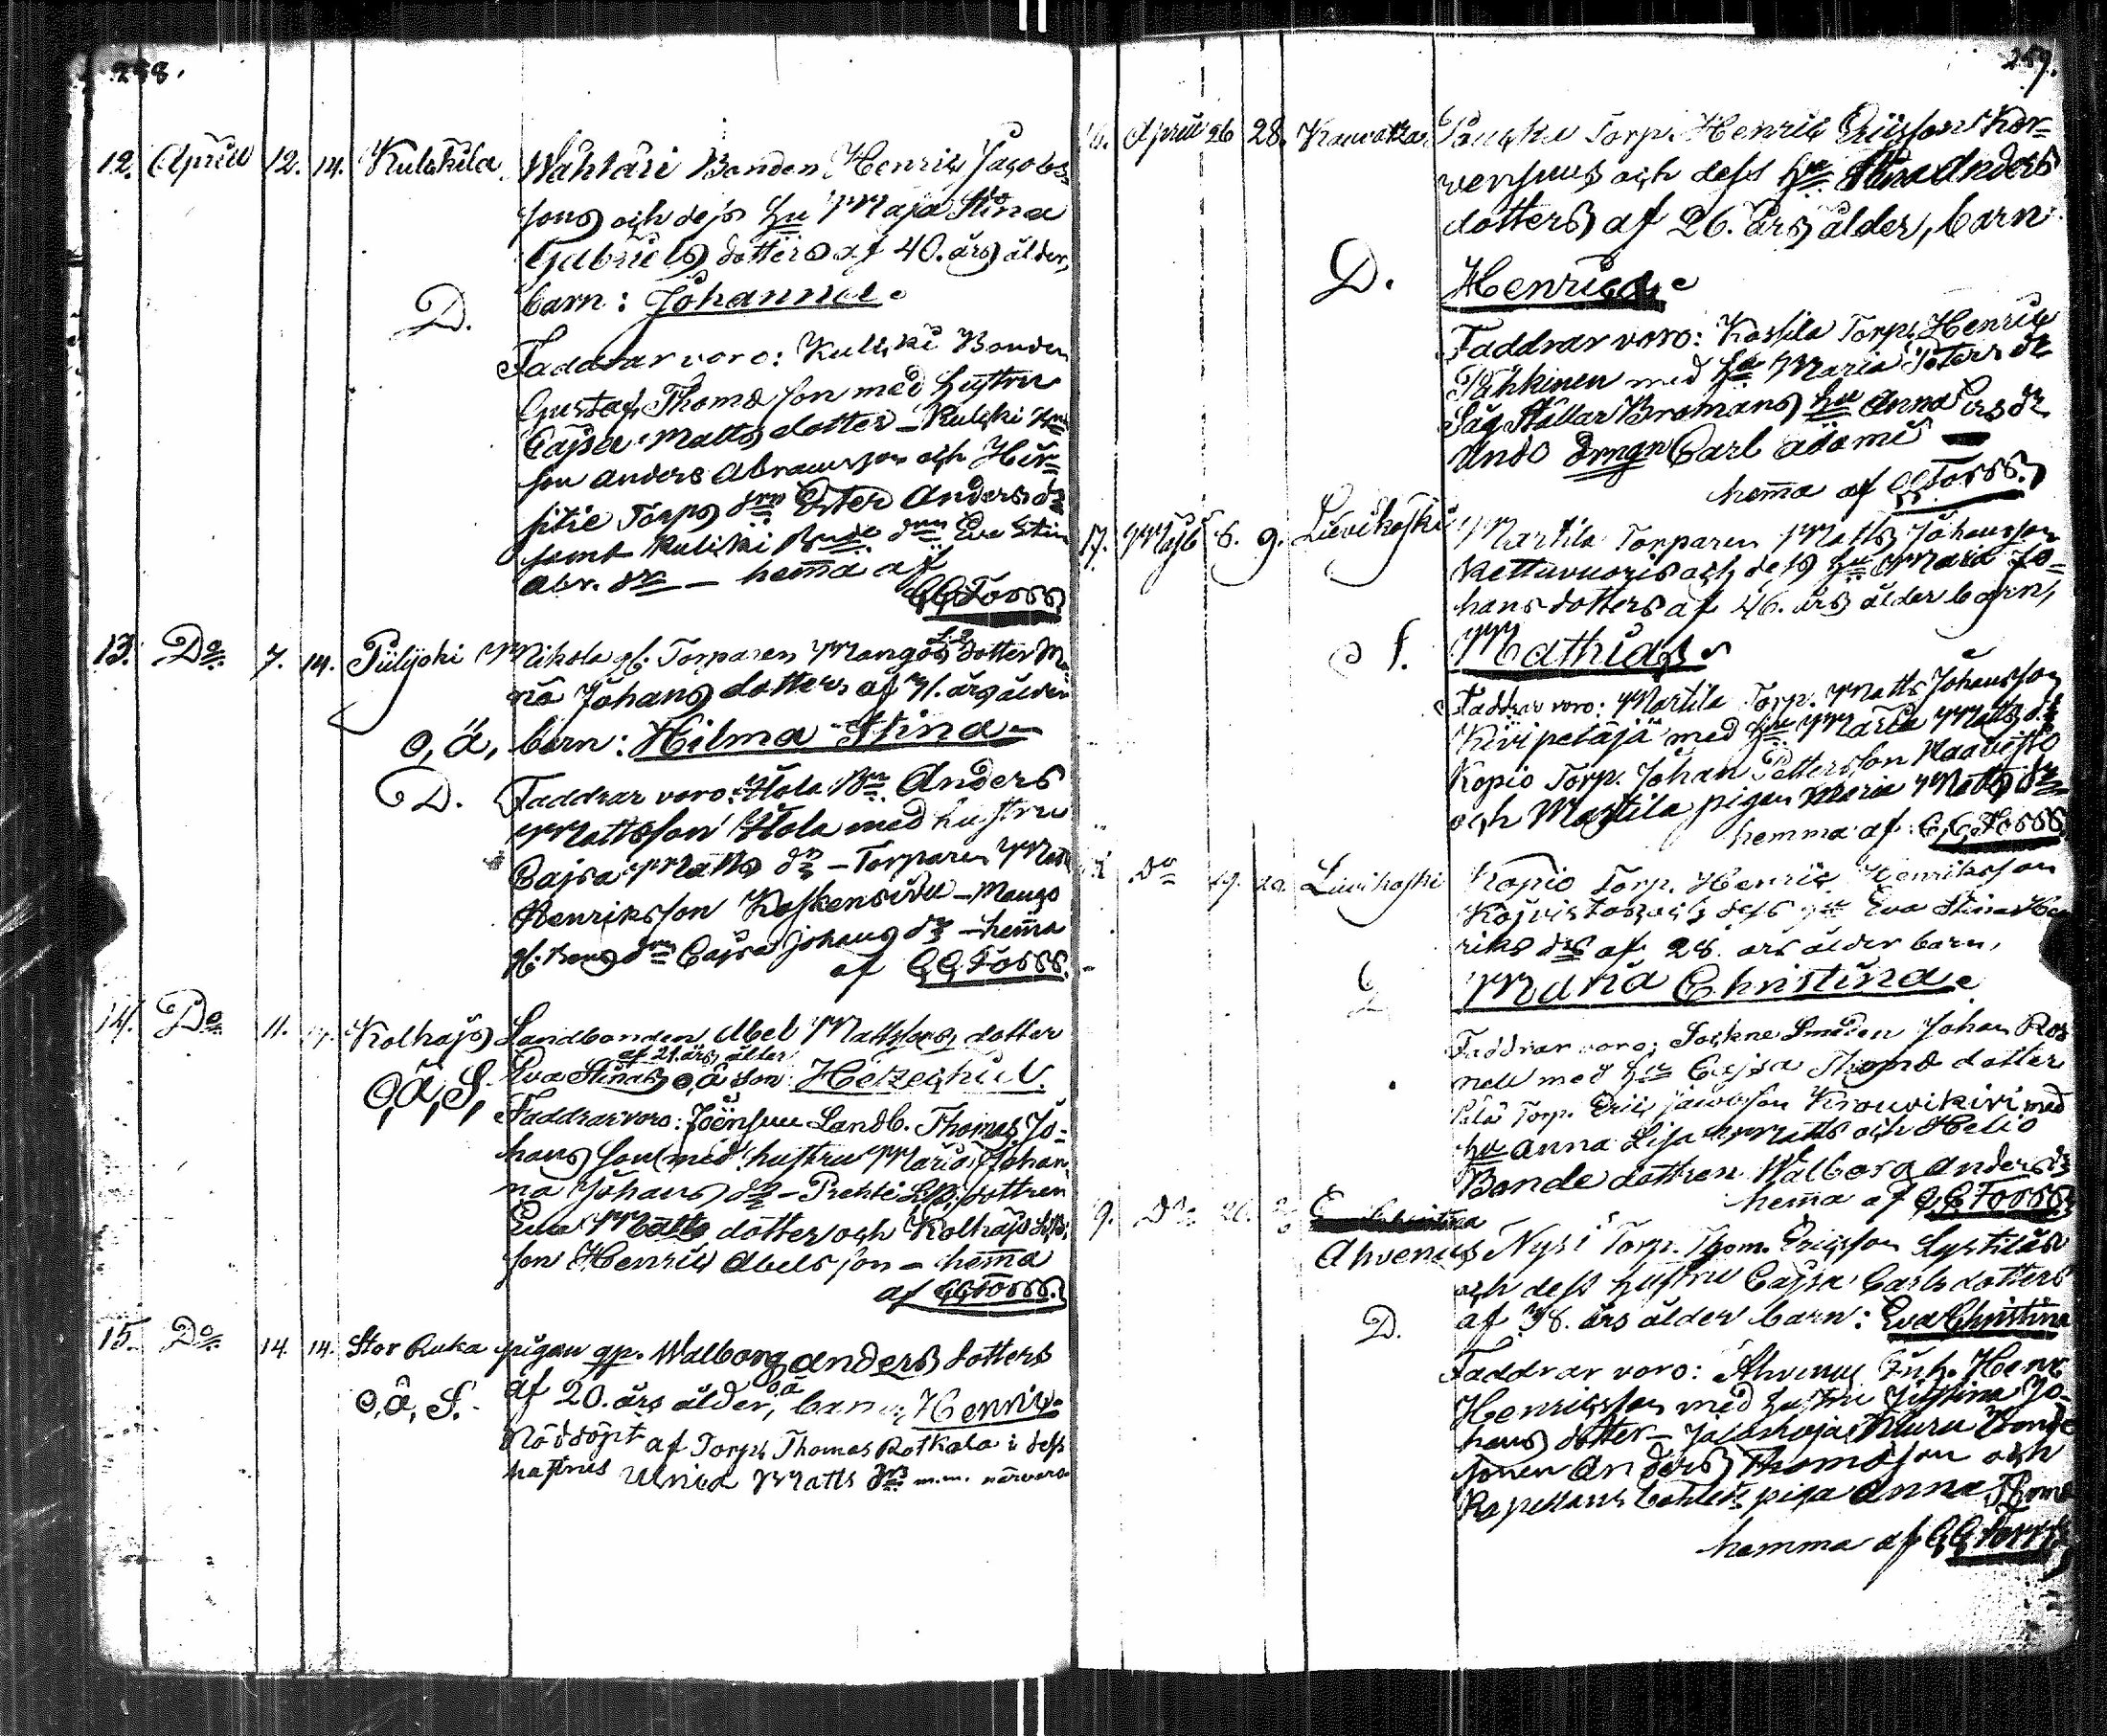 258.
12. April 12. 14. Kulskila Wähtäri Bonden Henric Jacobs-
sons och dess hu Maja Stina
Gabriels dotters af 40. års ålder,
D. barn: Johanna.
Faddrar voro: Kulski Bonden
Gustaf Thomasson med hustru
Cajsa Matts dotter – Kulski
son Anders Abramsson och Hir-
sitie Torps Ester Anders dr
samt Kuliski Eva Stin
Abr. dr – hemma af
CGForss
13. Do 7. 14. Piilijoki Mikola Torparen Mangos dotter Mi
na Johans dotters af 41. års ålder
o, ä, barn: Hilma Stina
D. Faddrar voro: Anders
Mattsson med hustru
Cajsa Matts dr – Torparen Matts
Henriksson Koskensivu – Mango
Cajsa Johans dr – hemma
af CGForss.
14. Do 11. Kolhajs Landbonden Abel Mattssons dotter
af 21. års ålder
O, Ä, S, Eva Stinas o, ä son: Hezechiel.
Faddrar voro: Joensuu Landb. Thomas Jo-
hans son med hustru Maria Johan
na Johans dr – Prehti LB. dottren
Eva Matts dotter och Kolhajs
son Henric Abels son – hemma
af CGForss.
15. Do 14. 14. Stor Ruka pigan Walborg Anders dotters
O, ä, S. af 20. års ålder, o,ä barn Henric
Nöddöpt af Torp. Thomas Rotkala i dess
hustrus Ulrica Matts drs m.m. närvaro
259.
16. April 26 28. Torp. Henric Ericsson Kor-
vensuus och dess hu Stina Anders
dotters af 26. års ålder, barn
D. Henrica.
Faddrar voro: Kostila Torp. Henric
Pähkinen med hu Maria Peters dr
Såg Ställar Bromans hu Anna dr
Undo drngn Carl Adami
hemma af CGForss.
17. Maji 6. 9. Lievikoski Martila Torparen Matts Johansson
Kettuvuoris och dess hu Maria Jo-
hans dotters af 46. års ålder barn,
S. Mathias
Faddrar voro: Martila Torp. Matts Johansson
Kivipetäjä med hu Maria Matts dr
Kopio Torp. Johan Pettersson
och Martila pigan Maria Matts dr
hemma af CGForss.
Do 19. 20. Lievikoski Kopio Torp. Henric Henriksson
Kojvistos och dess hu Eva Stina Hen
riks drs af 28. års ålder barn,
D Maria Christina.
Faddrar voro; Sockne Smeden Johan Ros
nell med hu Cajsa Thoms dotter
Torp. Eric Jacobsson Krouvikivi med
hu Anna Lisa Matts och Helio
Bonde dottren Walborg Anders dr
hemma af CGForss
9. Do 26.
Ahvenus Nysi Torp. Thom. Ericsson
och dess hustru Cajsa Carls dotters
D. af 38. års ålder barn: Eva Christina
Faddrar voro: Ahvenus Henr.
Henricsson med hustru Justina Jo-
hans dotter – Muru Bonde
sonen Anders Thomasson och
piga Anna Thoms
hemma af CGForss